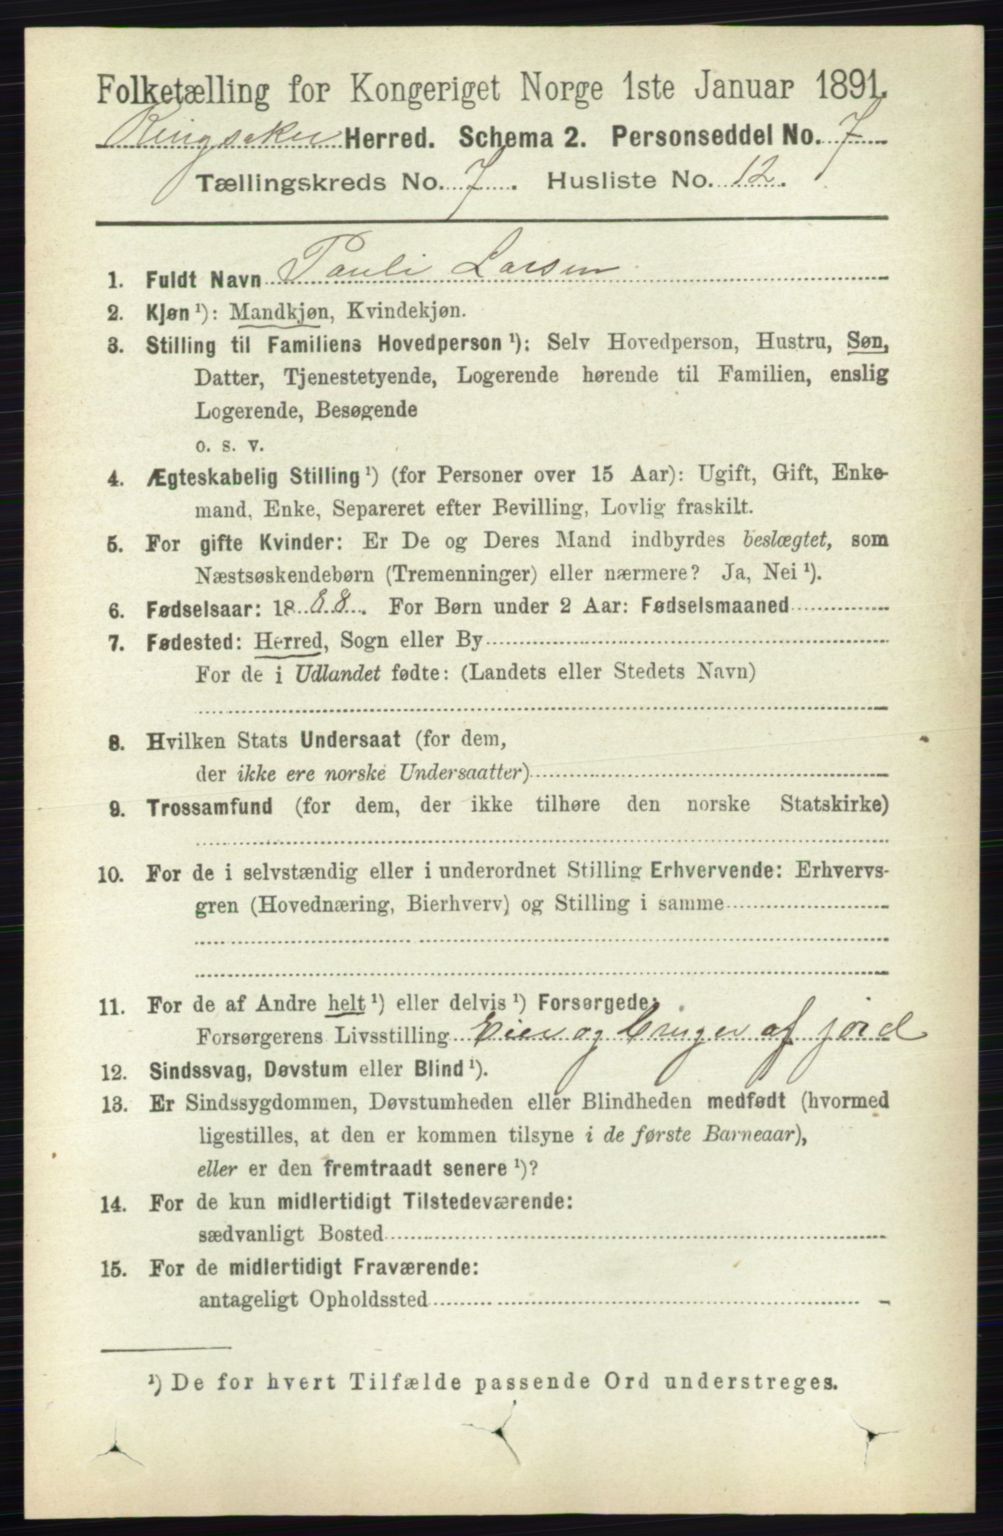 Folketælling for Kongeriget Norge 1ste Januar 1891.
Ringsaker Herred. Schema 2. Personseddel No. 7
Tællingskreds No. 7. Husliste No. 12.
1. Fuldt Navn Pauli Larsen
2. Kjøn ¹): Mandkjøn, Kvindekjøn.
3. Stilling til Familiens Hovedperson ¹): Selv Hovedperson, Hustru, Søn,
Datter, Tjenestetyende, Logerende hørende til Familien, enslig
Logerende, Besøgende
o. s. v.
4. Ægteskabelig Stilling ¹) (for Personer over 15 Aar): Ugift, Gift, Enke-
mand, Enke, Separeret efter Bevilling, Lovlig fraskilt.
5. For gifte Kvinder: Er De og Deres Mand indbyrdes beslægtet, som
Næstsøskendebørn (Tremenninger) eller nærmere? Ja, Nei ¹).
6. Fødselsaar: 1888. For Børn under 2 Aar: Fødselsmaaned
7. Fødested: Herred, Sogn eller By
For de i Udlandet fødte: (Landets eller Stedets Navn)
8. Hvilken Stats Undersaat (for dem,
der ikke ere norske Undersaatter)
9. Trossamfund (for dem, der ikke tilhøre den norske Statskirke)
10. For de i selvstændig eller i underordnet Stilling Erhvervende: Erhvervs-
gren (Hovednæring, Bierhverv) og Stilling i samme
11. For de af Andre helt ¹) eller delvis ¹) Forsørgede:
Forsørgerens Livsstilling Eier og bruger af jord
12. Sindssvag, Døvstum eller Blind ¹).
13. Er Sindssygdommen, Døvstumheden eller Blindheden medfødt (hvormed
ligestilles, at den er kommen tilsyne i de første Barneaar),
eller er den fremtraadt senere ¹)?
14. For de kun midlertidigt Tilstedeværende:
sædvanligt Bosted
15. For de midlertidigt Fraværende:
antageligt Opholdssted
¹) De for hvert Tilfælde passende Ord understreges.